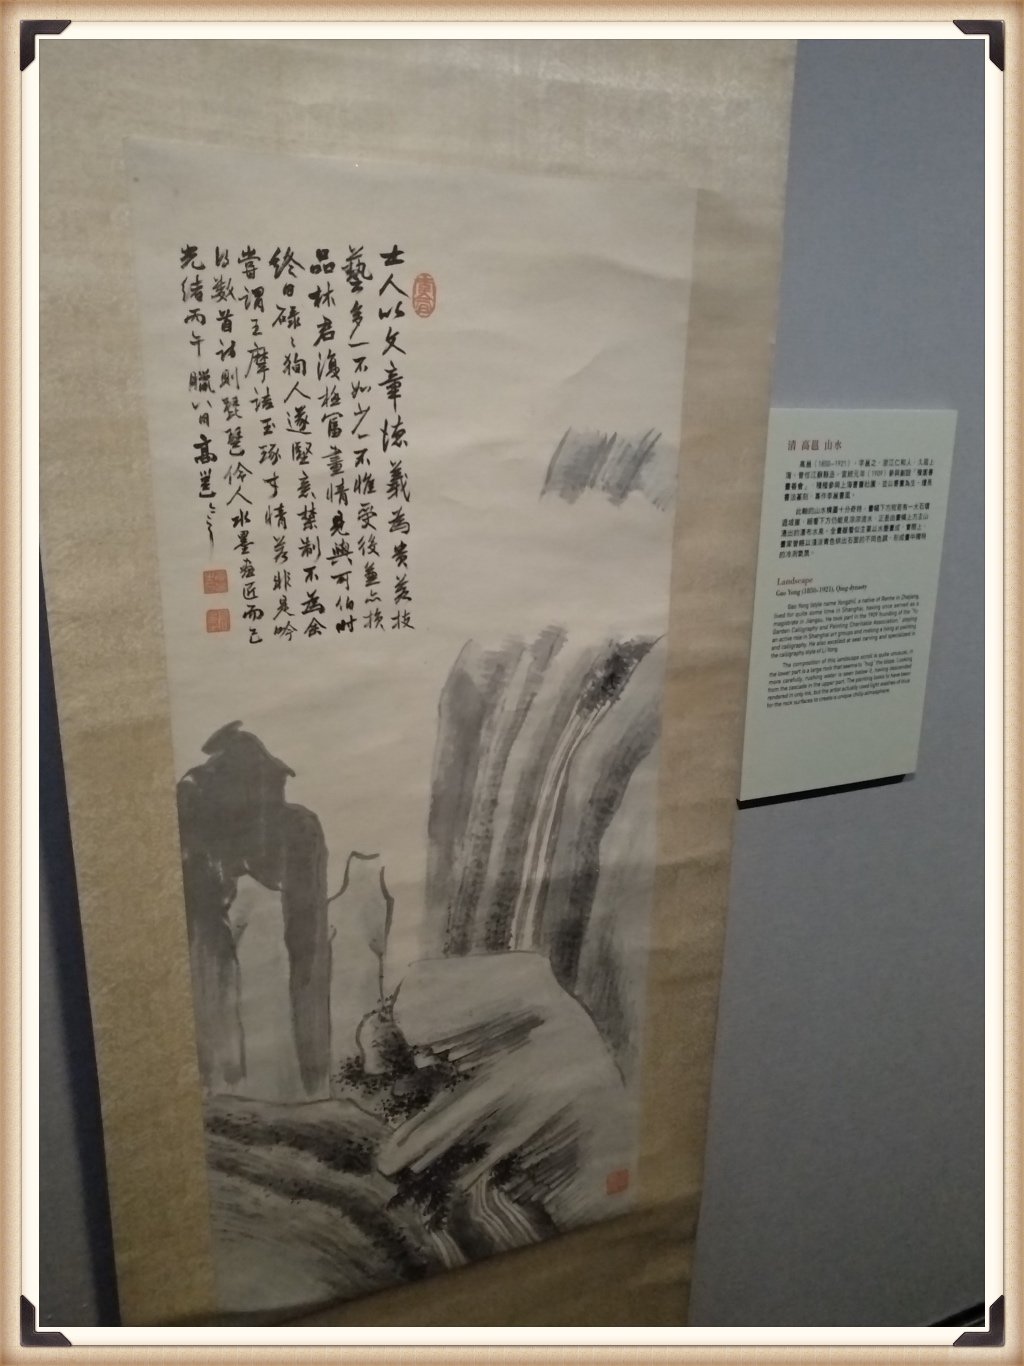 士人以文章德義為貴若技
藝多一不如少一不惟受後益点損
品林君復極富畫情見與可伯时
終日碌〻狗人遂堅意禁制不為余
嘗謂王摩詰玉琢才情若非是吟
得数首詩則琵琶伶人水墨畫匠而已
光緒丙午臘八日高邕
清 高邕 山水
高邕（1850-1921），字邕之，浙江仁和人，久居上
海。曾任江蘇縣丞。宣統元年（1909）參與創設「豫園書
畫善會」，積極參與上海書畫社團，並以書畫為生。擅長
書法篆刻，專仿李邕書風。
Landscape
Gao Yong (1850-1921), Qing dynasty
Gao Yong (style name Yongzhi), a native of Renhe in Zhejiang,
lived for quite some time in Shanghai, having once served as a
magistrate in Jiangsu. He took part in the 1909 founding of the "Yu
Garden Calligraphy and Painting Charitable Association," playing
an active role in Shanghai art groups and making a living at painting
and calligraphy. He also excelled at seal carving and specialized in
the calligraphy style of Li Yong.
The composition of this landscape scroll is quite unusual, in
the lower part is a large rock that seems to "hug" the slope. Looking
more carefully, rushing water is seen below it, having descended
from the cascade in the upper part. The painting looks to have been
rendered in only ink, but the artist actually used light washes of blue
for the rock surfaces to create a unique chilly atmosphere.